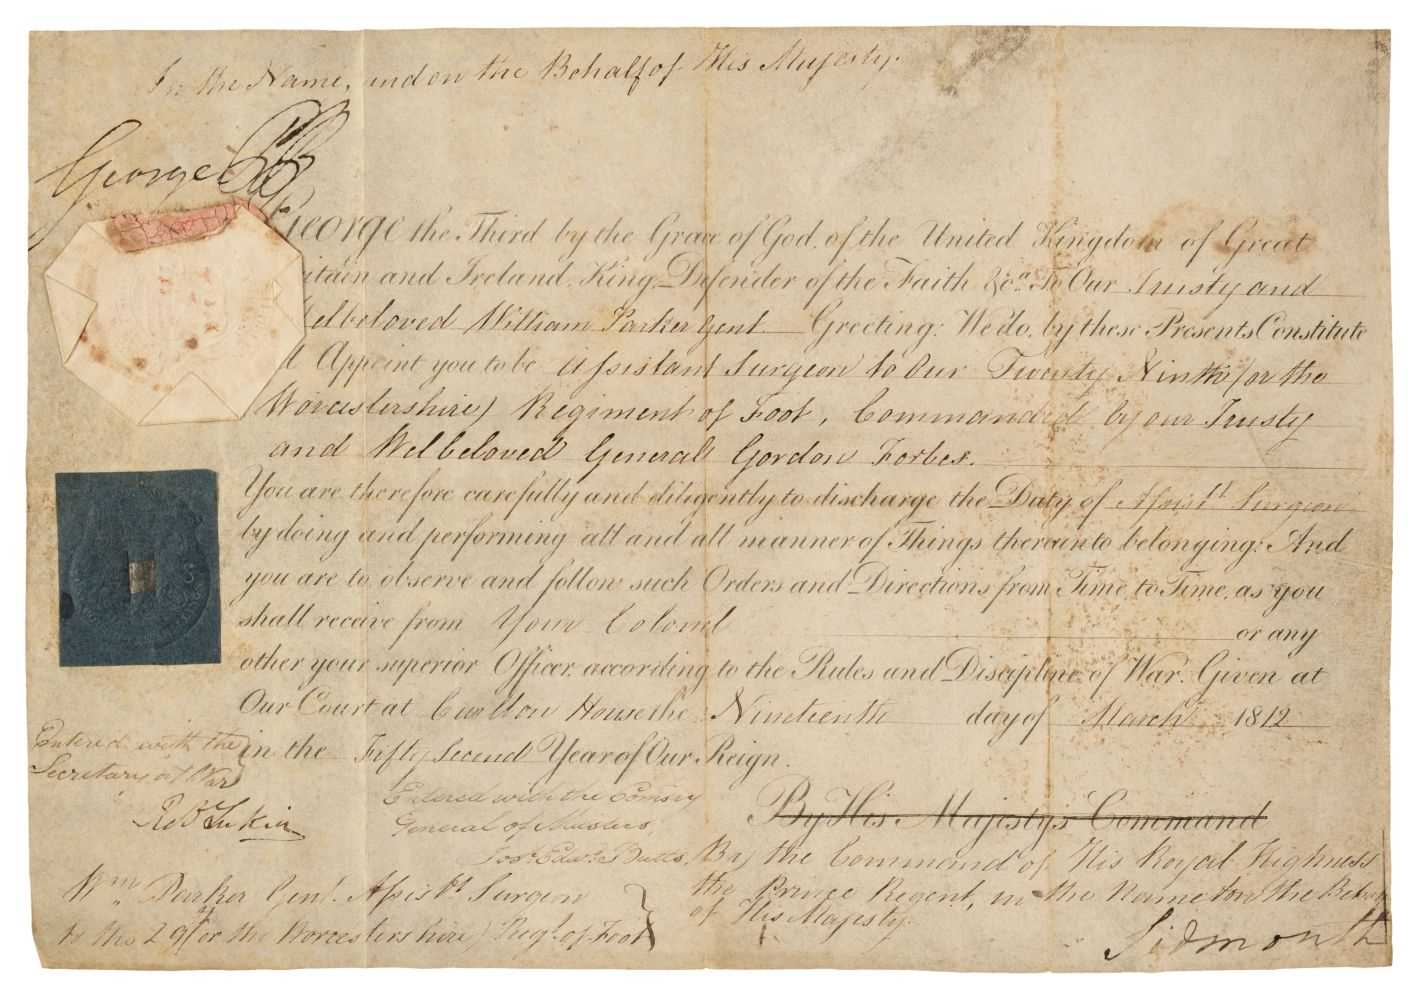 In the Name, and on the Behalf of His Majesty.
George PR
George the Third by the Grace of God, of the United Kingdom of Great
Britain and Ireland, King, Defender of the Faith &ca. To Our Trusty and
Welbeloved William Parker Gent Greeting: We do, by these Presents Constitute
d Appoint you to be Assistant Surgeon to Our Twenty Ninth (or the
Worcestershire) Regiment of Foot, Commanded by our Trusty
and Welbeloved General Gordon Forbes.
You are therefore carefully and diligently to discharge the Duty of Assist.t Surgeon
by doing and performing all and all manner of Things thereunto belonging: And
you are to observe and follow such Orders and Directions from Time to Time, as you
shall receive from Your Colonel or any
other your superior Officer, according to the Rules and Discipline of War. Given at
Our Court at Carlton House the Nineteenth day of March 1812
in the Fifty Second Year of Our Reign.
Entered with the
Secretary at War
Entered with the Comsry
General of Musters
Jos. Edwd. Butts
By His Majesty's Command
By the Command of His Royal Highness
the Prince Regent, in the Name & on the Behalf
of His Majesty.
Sidmouth
Wm. Parker Gent. Assist.t Surgeon
to the 29th (or the Worcestershire) Regt. of Foot